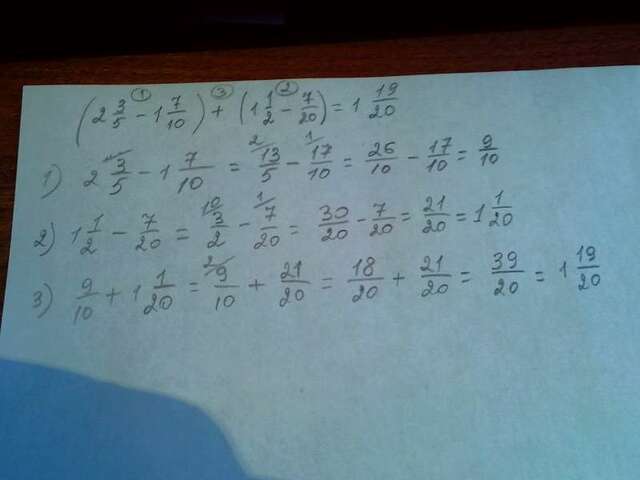 (2 3/5 - 1 7/10) + (1 1/2 - 7/20) = 1 19/20
1) 2 3/5 - 1 7/10 = 13/5 - 17/10 = 26/10 - 17/10 = 9/10
2) 1 1/2 - 7/20 = 3/2 - 7/20 = 30/20 - 7/20 = 21/20 = 1 1/20
3) 9/10 + 1 1/20 = 9/10 + 21/20 = 18/20 + 21/20 = 39/20 = 1 19/20